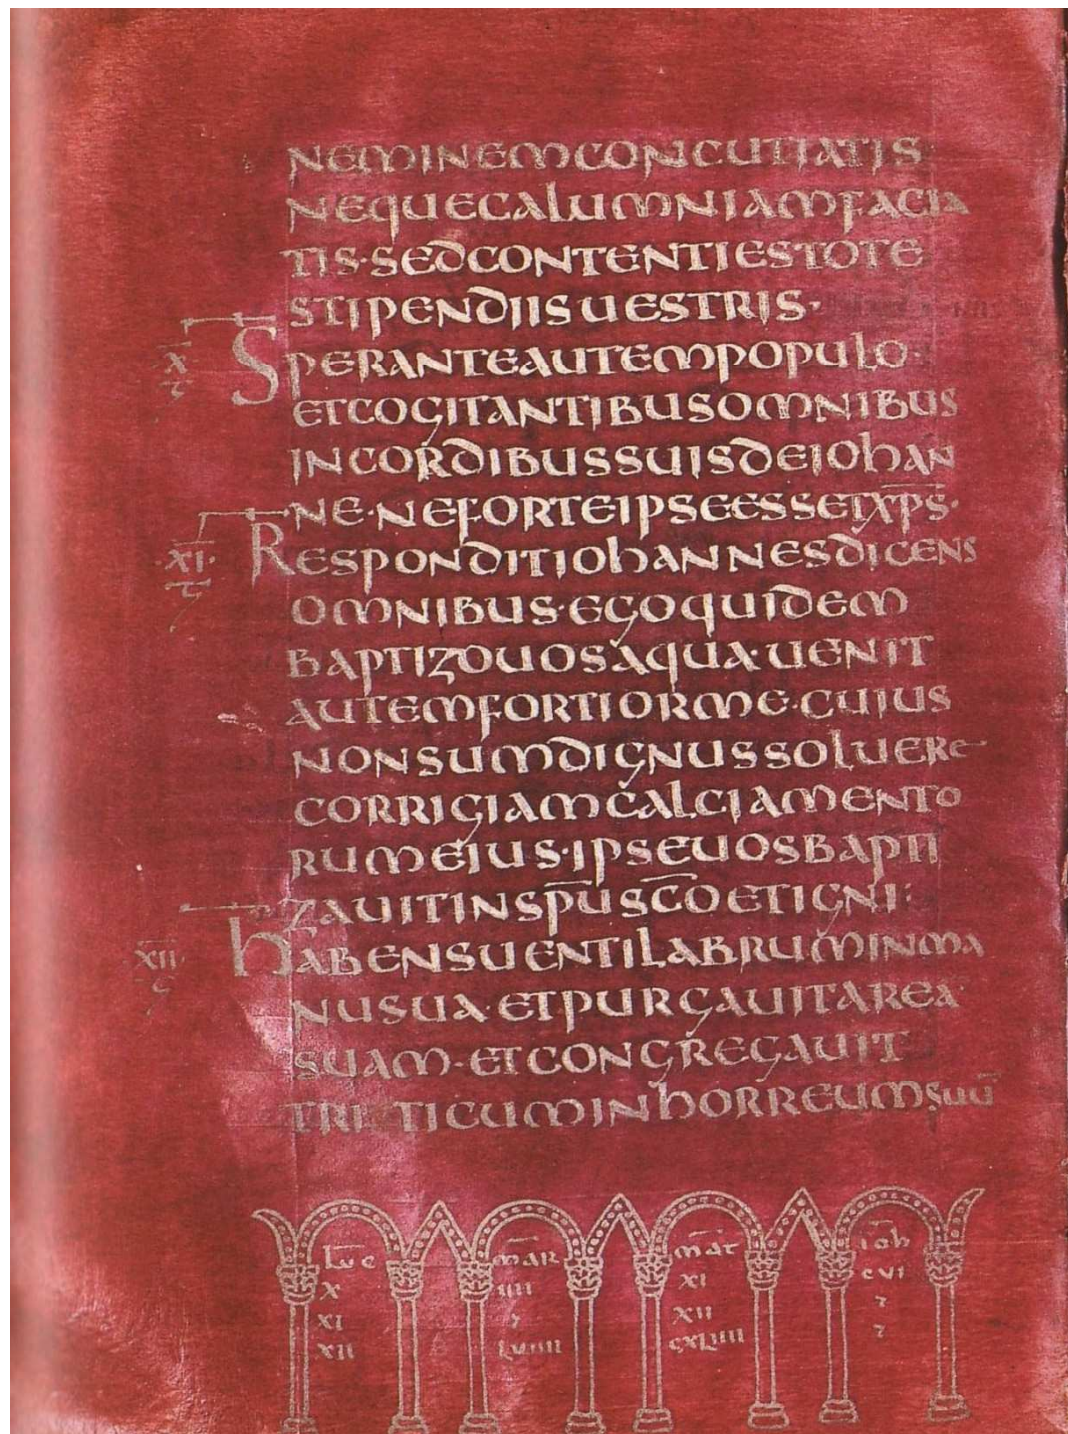 NEMINEMCONCUTIATIS
NEQUECALUMNIAMFACIA
TIS·SEDCONTENTIESTOTE
STIPENDIISUESTRIS·
SPERANTEAUTEMPOPULO·
ETCOGITANTIBUSOMNIBUS
INCORDIBUSSUISDEIOHAN
NE·NEFORTEIPSEESSETXP̅S̅·
RESPONDITIOHANNESDICENS
OMNIBUS·EGOQUIDEM
BAPTIZOUOSAQUA·UENIT
AUTEMFORTIORME·CUIUS
NONSUMDIGNUSSOLUERE
CORRIGIAMCALCIAMENTO
RUMEIUS·IPSEUOSBAPTI
ZAUITINSP̅USC̅OETIGNI·
HABENSUENTILABRUMINMA
NUSUA·ETPURGAUITAREA
SUAM·ETCONGREGAUIT
TRITICUMINHORREUMSUU̅
X̅
X̅I̅·
X̅I̅I̅·
LUC
X
XI
XII
MAR
IIII
LVIIII
MAT
XI
XII
CXLIIII
IOH
CVI